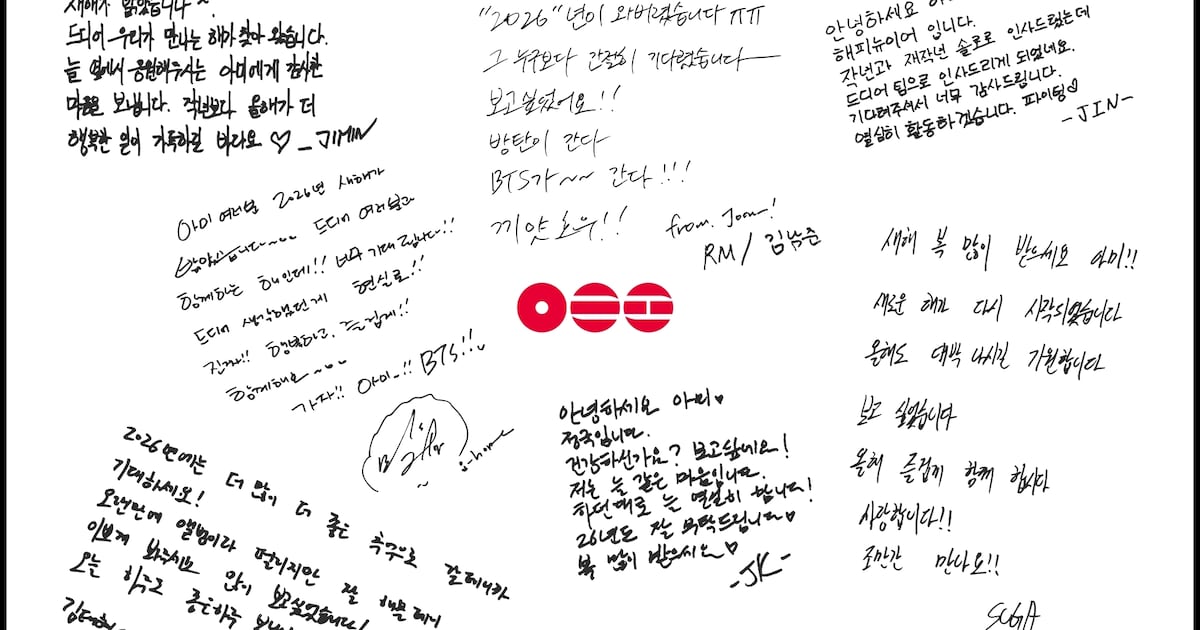 새해가 밝았습니다~.
드디어 우리가 만나는 해가 찾아 왔습니다.
늘 옆에서 응원해주시는 아미에게 감사한
마음을 보냅니다. 작년보다 올해가 더
행복한 일이 가득하길 바라요 ♡ _JIMIN
"2026"년이 와버렸습니다 ㅠㅠ
그 누구보다 간절히 기다렸습니다
보고싶었어요!!
방탄이 간다
BTS가~~ 간다!!!
끼얏호우!!
from. Joon!
RM / 김남준
안녕하세요
해피뉴이어 입니다.
작년과 재작년 솔로로 인사드렸는데
드디어 팀으로 인사드리게 되었네요.
기다려주셔서 너무 감사드립니다.
열심히 활동하겠습니다. 파이팅♡
-JIN-
아미 여러분 2026년 새해가
밝았습니다~~~ 드디어 여러분과
함께하는 해인데!! 너무 기대됩니다!!
드디어 생각했던게 현실로!!
진짜!! 행복하고, 즐겁게!!
함께해요~~~
가자!! 아미~!! BTS!!
j-hope
새해 복 많이 받으세요 아미!!
새로운 해가 다시 시작되었습니다
올해도 대박 나시길 기원합니다
보고 싶었습니다
올해 즐겁게 함께 합시다
사랑합니다!!
조만간 만나요!!
SUGA
안녕하세요 아미♥
정국입니다.
건강하신가요? 보고싶네요!
저는 늘 같은 마음입니다.
하던대로 늘 열심히 합니다!
26년도 잘 부탁드립니다♥
복 많이 받으시는♥
-JK-
2026년에는 더 많이 더 좋은 추억으로 갈테니까
기대하세요!
오랜만에 앨범이라 떨리지만 잘 해볼테니
이쁘게 봐주시요 많이 보고싶었습니다!
오늘 하루도 좋은하루